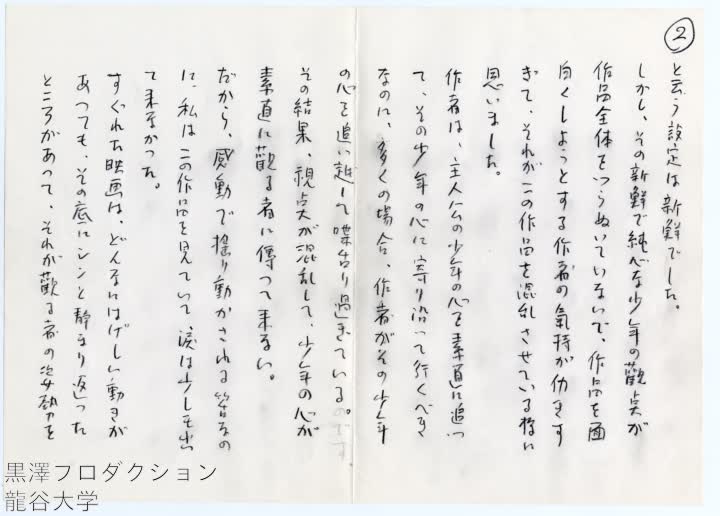 ②
と云う設定は新鮮でした。
しかし、その新鮮で純心な少年の觀点が
作品全体をつらぬいていないで、作品を面
白くしようとする作者の氣持が仂きす
ぎて、それがこの作品を混乱させている様に
思いました。
作者は、主人公の少年の心を素直に追っ
て、その少年の心に寄り沿って行くべき
なのに、多くの場合、作者がその少年
の心を追い越して喋り過ぎている。のです
その結果、視点が混乱して、少年の心が
素直に觀る者に傳って来ない。
だから、感動で揺り動かされる筈なの
に、私はこの作品を見ていて涙は少しも出
て来なかった。
すぐれた映画は、どんなにはげしい動きが
あっても、その底にシンと静まり返った
ところがあって、それが觀る者の姿勢を
黒澤プロダクション
龍谷大学